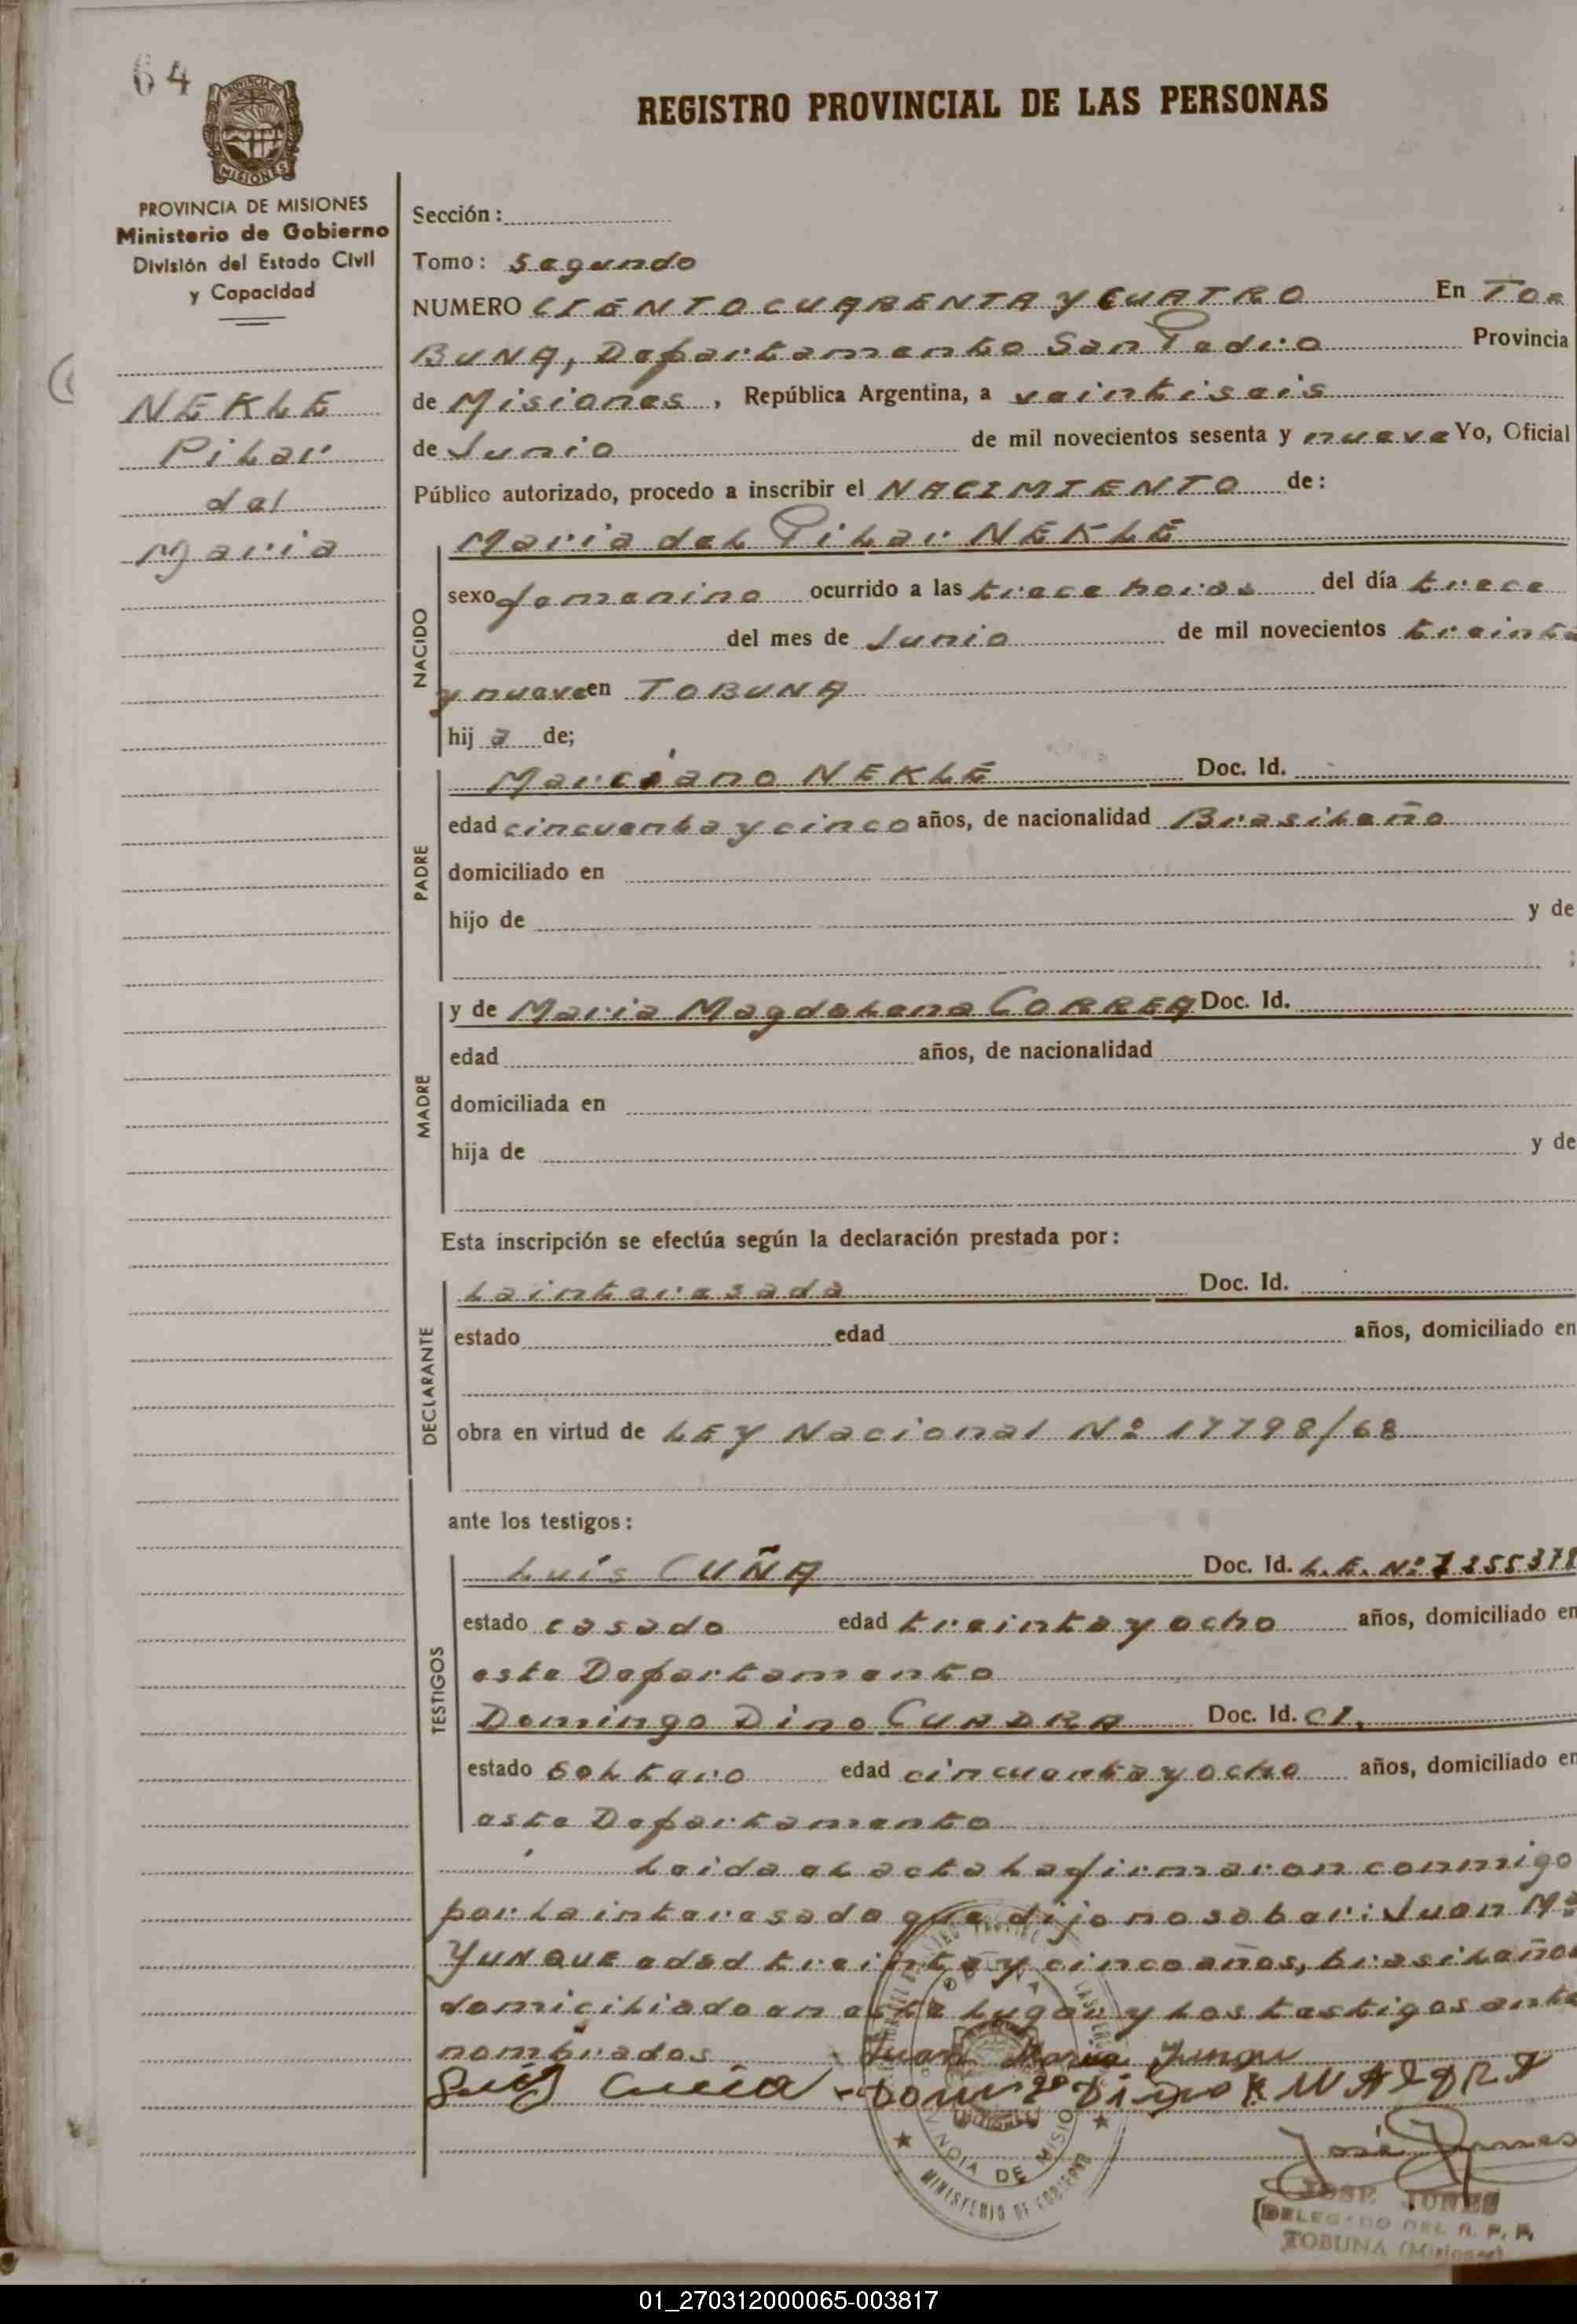 64
REGISTRO PROVINCIAL DE LAS PERSONAS
PROVINCIA DE MISIONES
Ministerio de Gobierno
División del Estado Civil
y Capacidad
NEKLE
Pilar
del
Maria
Sección:
Tomo: Segundo
NUMERO CIENTO CUARENTA Y CUATRO En TO=
BUNA, Departamento San Pedro Provincia
de Misiones, República Argentina, a veintiseis
de Junio de mil novecientos sesenta y nueve Yo, Oficial
Público autorizado, procedo a inscribir el NACIMIENTO de:
NACIDO
Maria del Pilar NEKLE
sexo femenino ocurrido a las trece horas del día trece
del mes de Junio de mil novecientos treinta
y nueve en TOBUNA
hij a de;
PADRE
Marciano NEKLE Doc. Id.
edad cincuenta y cinco años, de nacionalidad Brasileño
domiciliado en
hijo de y de
;
MADRE
y de Maria Magdalena CORREA Doc. Id.
edad años, de nacionalidad
domiciliada en
hija de y de
Esta inscripción se efectúa según la declaración prestada por:
DECLARANTE
La interesada Doc. Id.
estado edad años, domiciliado en
obra en virtud de LEY Nacional Nº 17798/68
ante los testigos:
TESTIGOS
Luís CUÑA Doc. Id. L.E. Nº 7355378
estado casado edad treinta y ocho años, domiciliado en
este Departamento
Domingo Dino CUADRA Doc. Id. CI,
estado soltero edad cincuenta y ocho años, domiciliado en
este Departamento
Leida el acta la firmaron conmigo
por la interesada que dijo no saber: Juan Mª
YUNQUE edad treinta y cinco años, brasileño
domiciliado en este lugar y los testigos ante
nombrados
Juan Maria
Luis Cuña
MINISTERIO DE GOBIERNO
José Junes
JOSE JUNES
DELEGADO DEL R. P. P.
TOBUNA (Misiones)
01_270312000065-003817